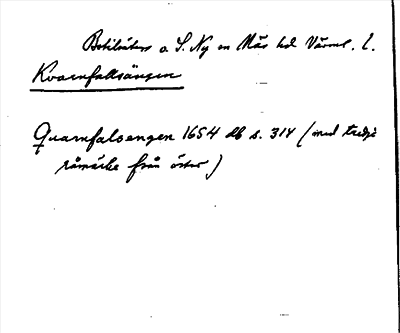 a S. Ny sn Näs hd Värml. l.
Kvarnfallsängen
Quarnfalsengen 1654 db s. 314 (med tredje
råmärke från öster)